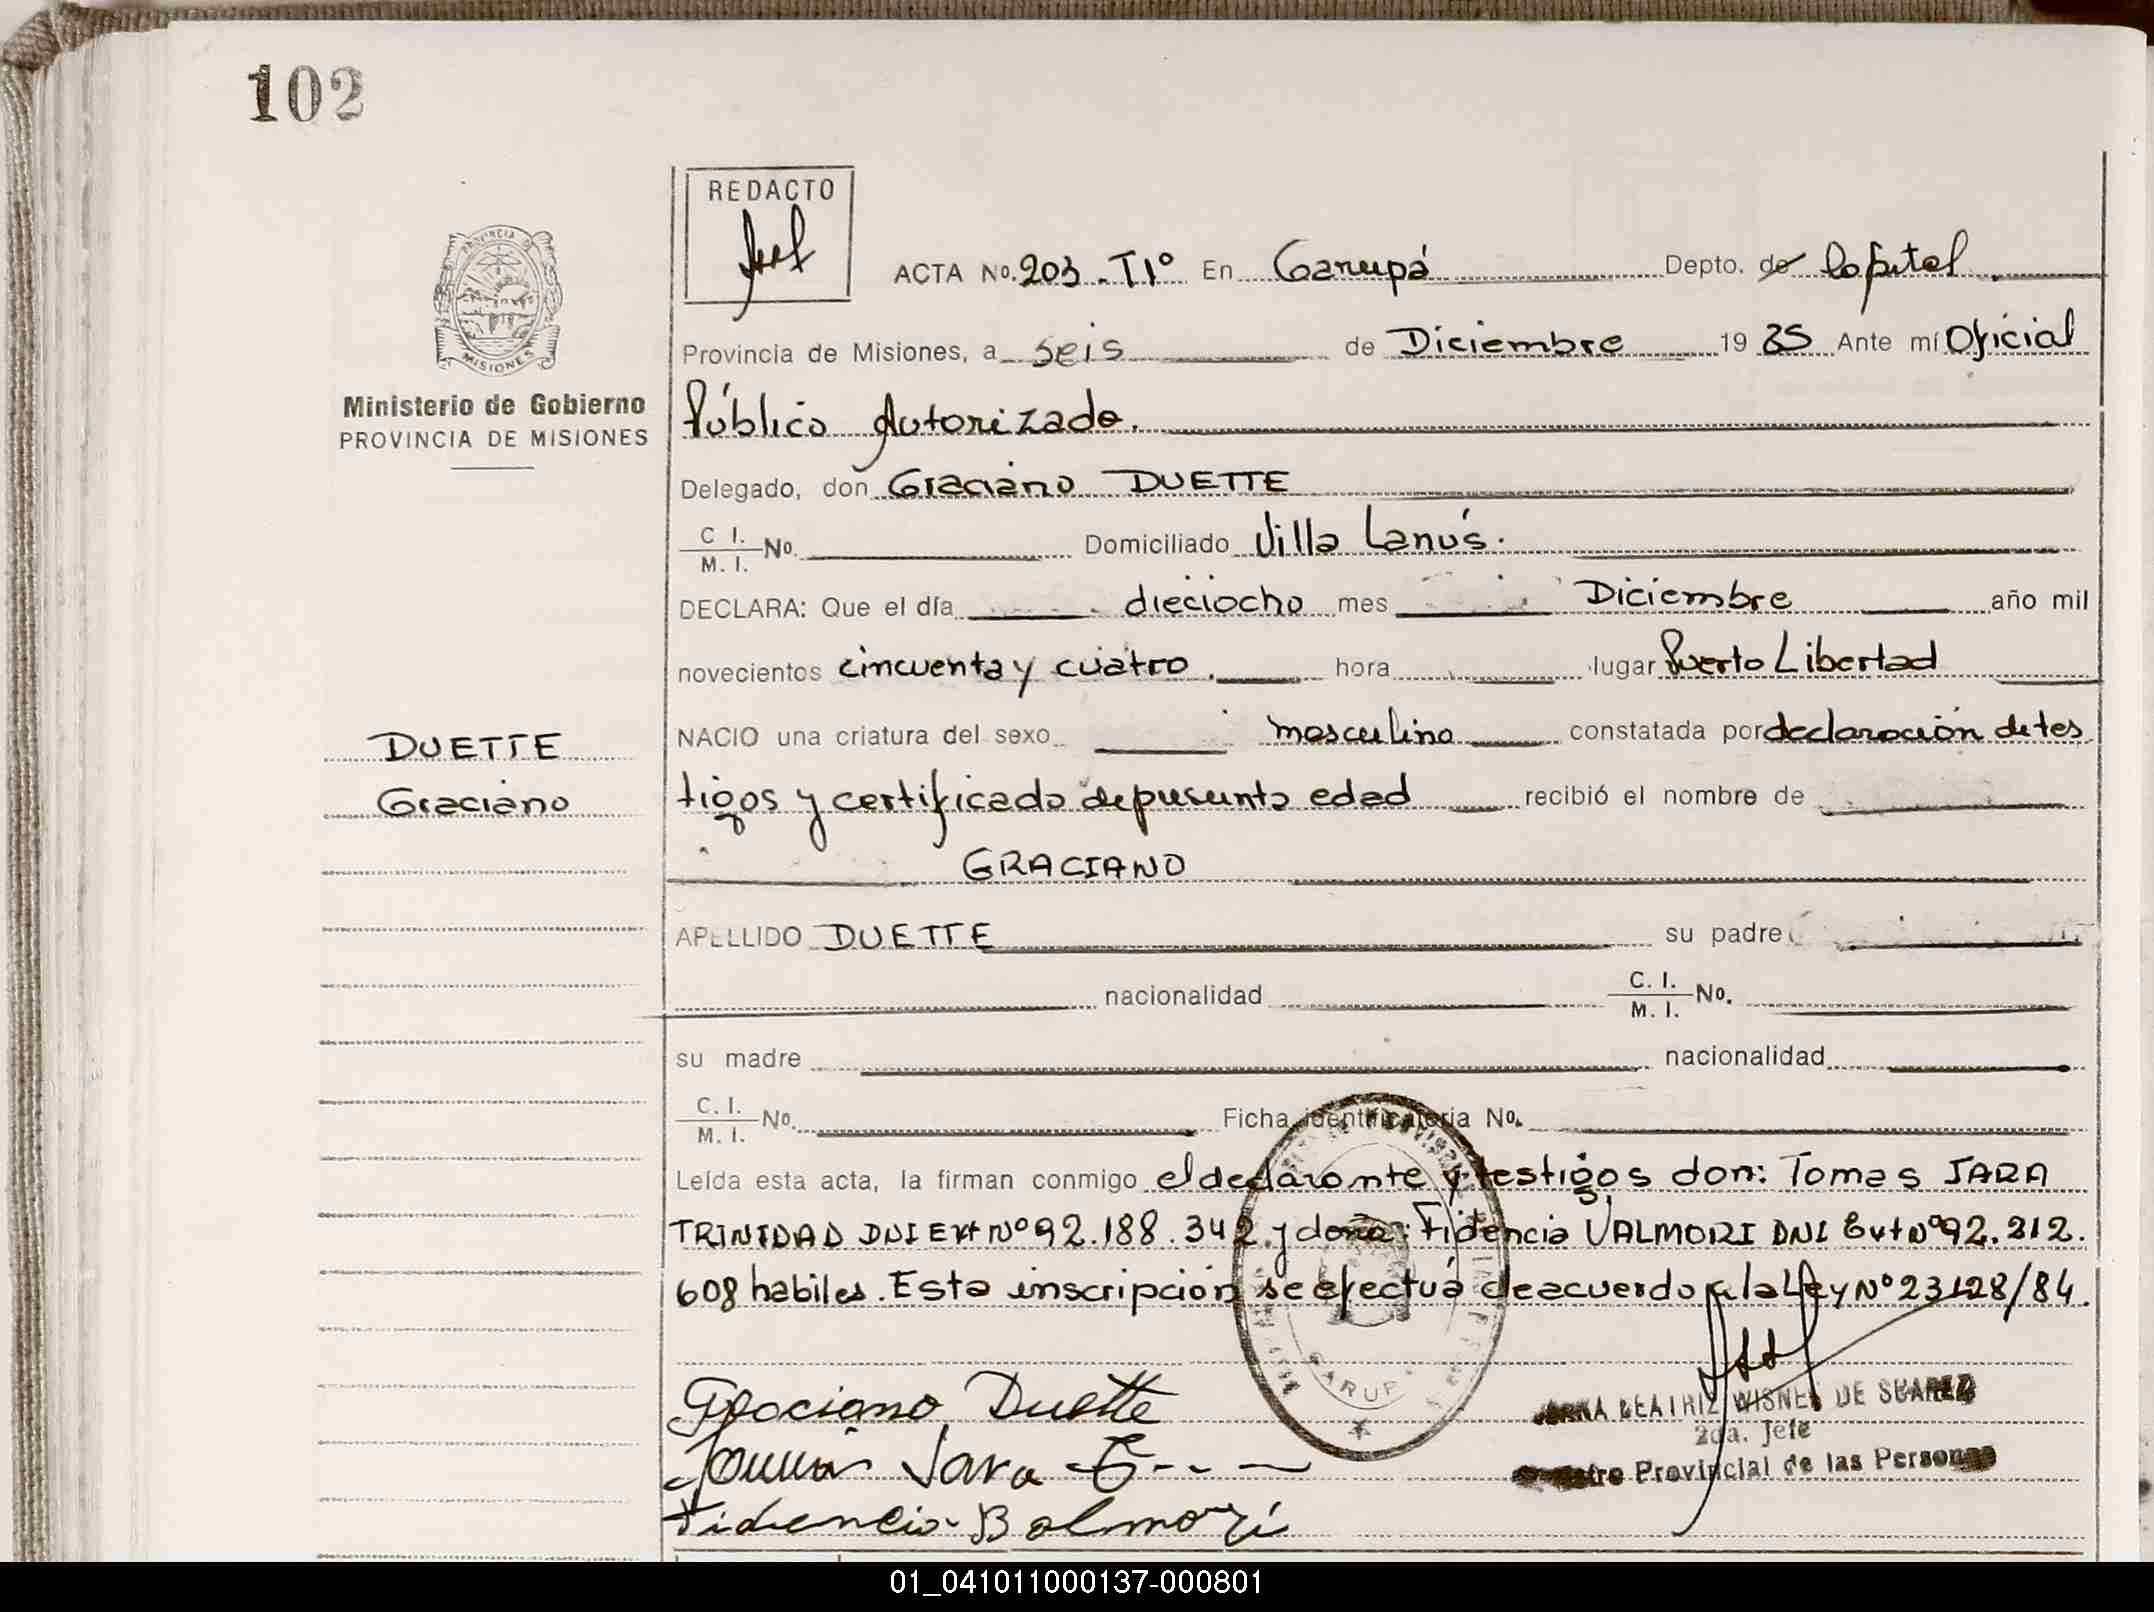 102
REDACTO
ACTA No. 203 - TIº En Garupá Depto. de Capital.
PROVINCIA DE
MISIONES
Provincia de Misiones, a seis de Diciembre 1985 Ante mí Oficial
Ministerio de Gobierno
PROVINCIA DE MISIONES
Público Autorizado.
Delegado, don Graciano DUETTE
C I. M. I. No. Domiciliado Villa Lanús.
DECLARA: Que el día dieciocho mes Diciembre año mil
novecientos cincuenta y cuatro. hora lugar Puerto Libertad
DUETTE
NACIO una criatura del sexo masculino constatada por declaración de tes
Graciano
tigos y certificado de presunta edad recibió el nombre de
GRACIANO
APELLIDO DUETTE su padre
nacionalidad C. I. M. I. No.
su madre nacionalidad
C. I. M. I. No. Ficha identificatoria No.
Leída esta acta, la firman conmigo el declarante y testigos don: Tomas JARA
TRINIDAD DNI Ext Nº 92.188.342 y doña: Fidencia VALMORI DNI Ext Nº 92.212.
608 habiles. Esta inscripción se efectúa de acuerdo a la Ley Nº 23128/84.
Graciano Duette
BEATRIZ WISNE DE SUAREZ
2da. Jefe
Tomas Jara
Provincial de las Personas
Fidencia Balmori
GARUP
01_041011000137-000801